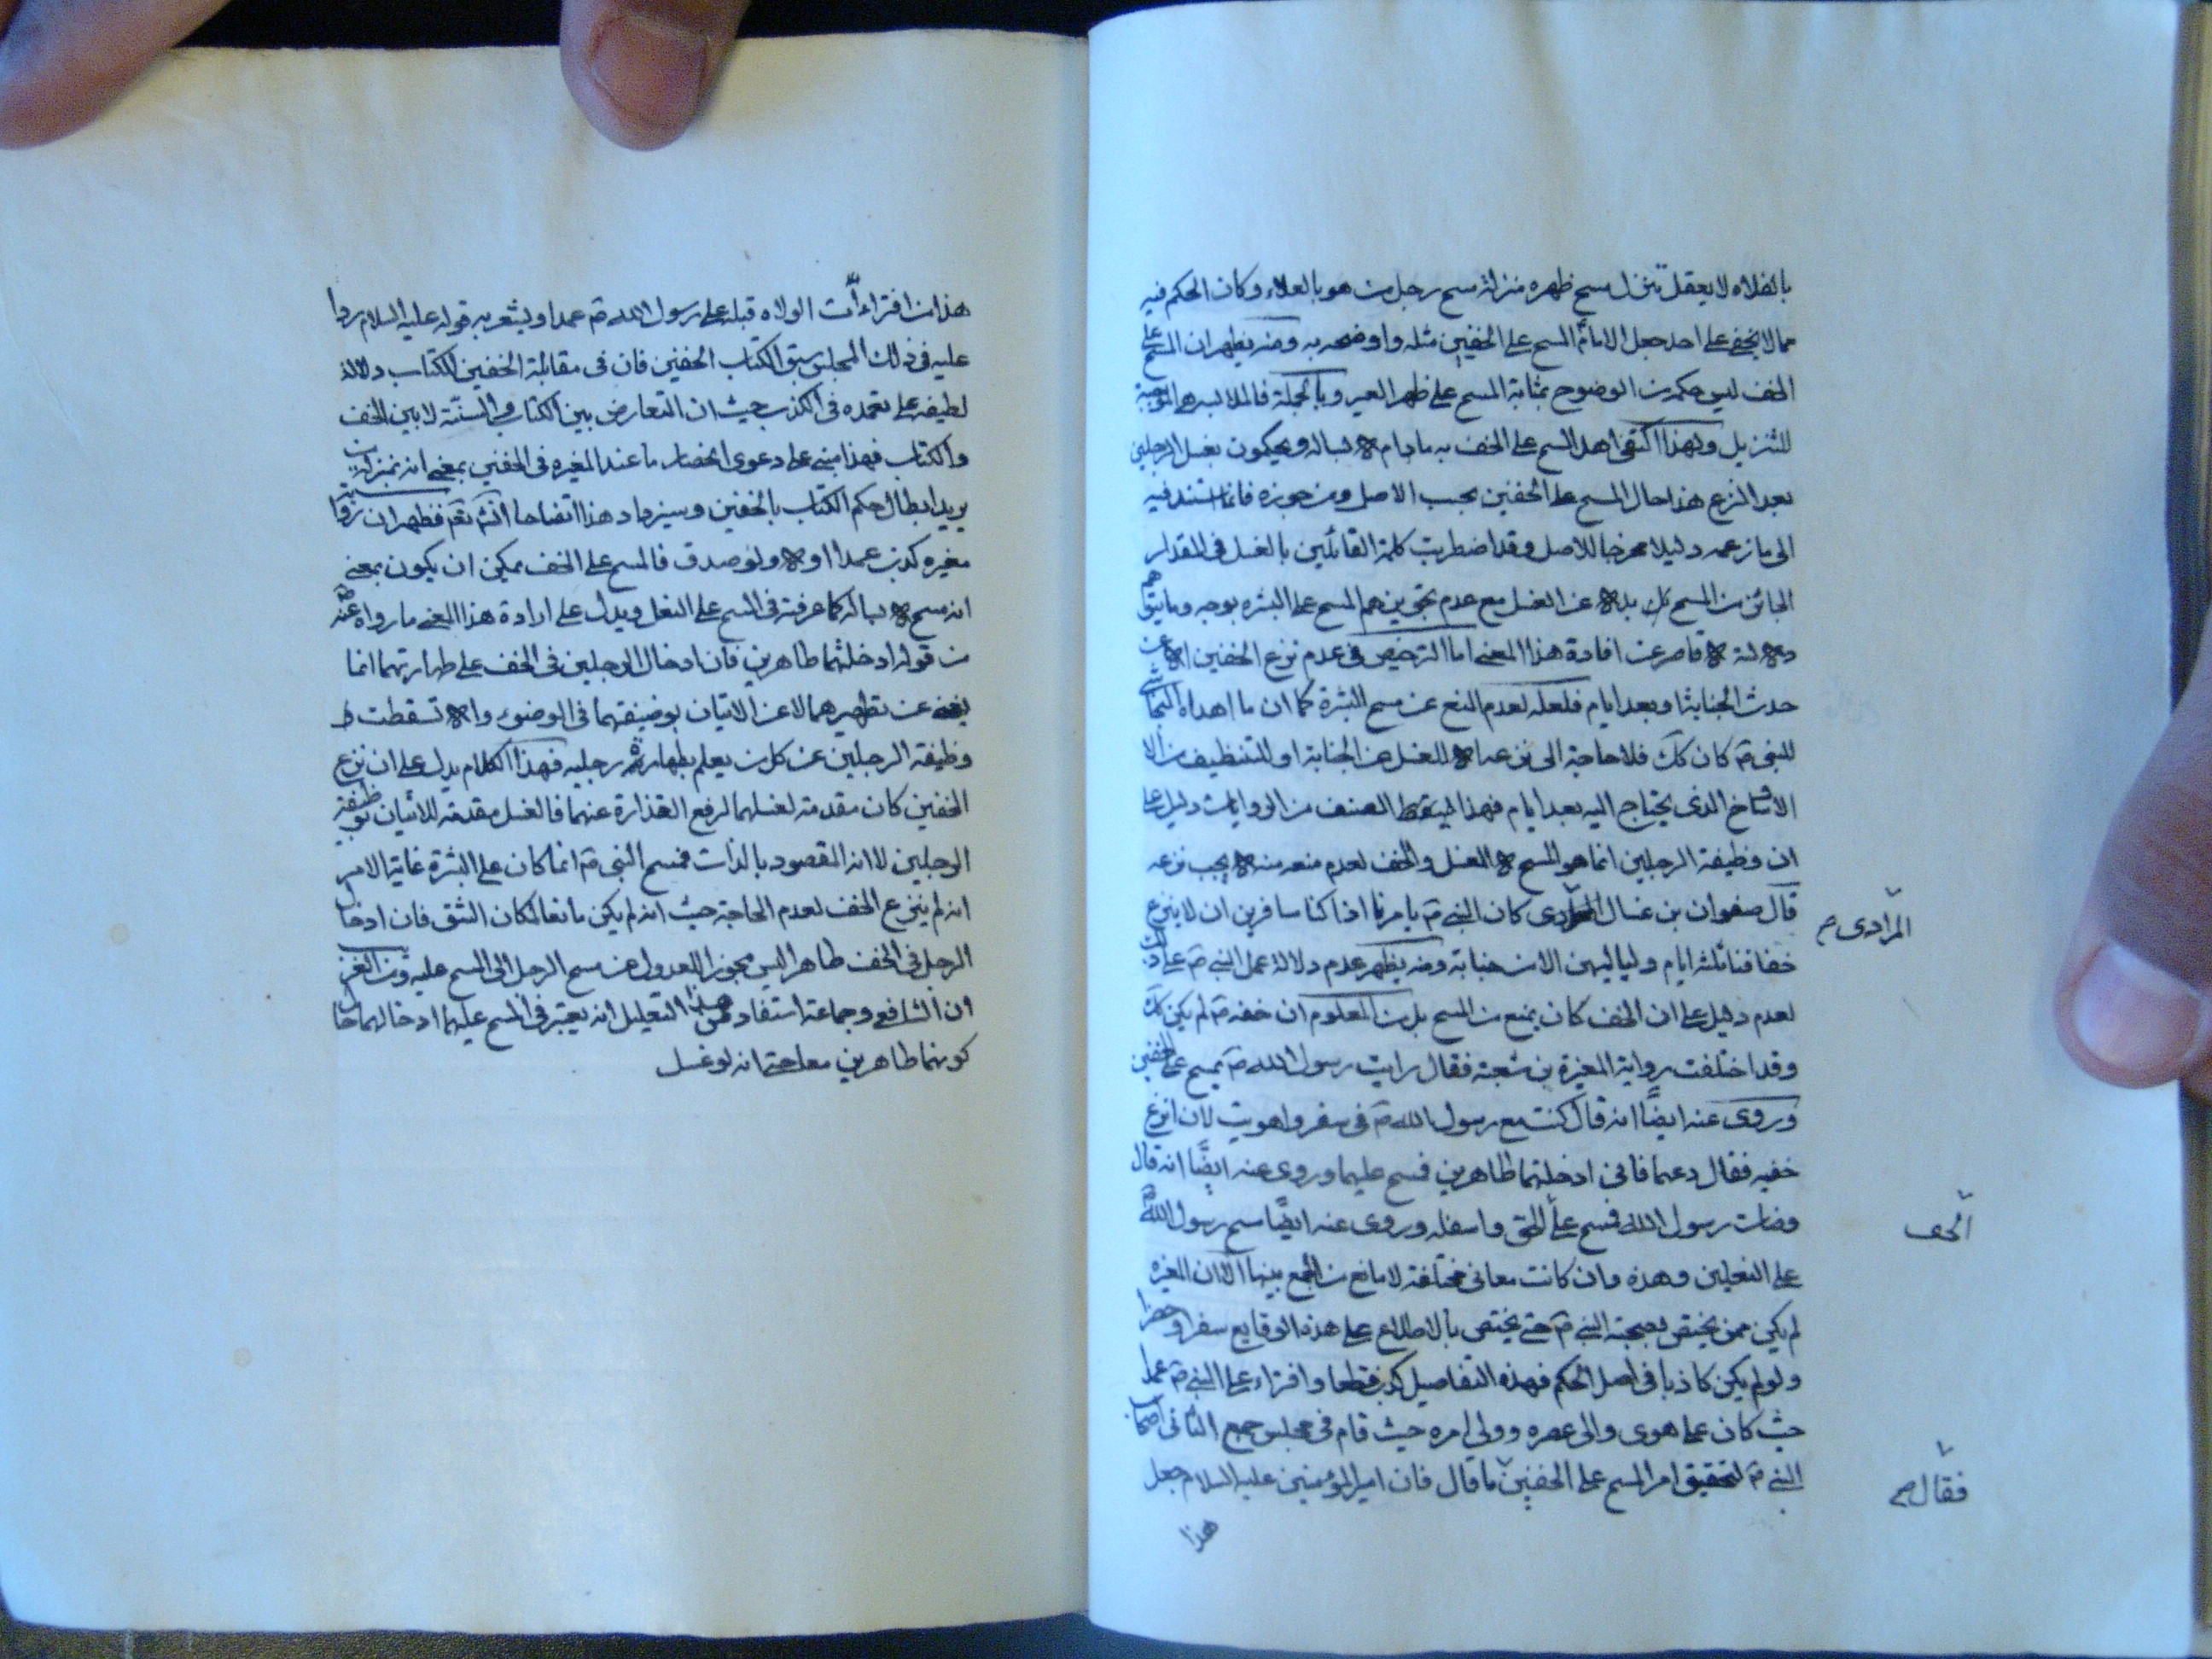 بالفلاه لا يعقل تنزل مسح ظهره منزلة مسح رجل من هو بالعلاء وكان الحكم فيه
مما لا يخفى على احد جعل الامام المسح على الخفين مثله واوضحه به ومنه يظهر ان المسح على
الخف ليس حكمه من الوضوح بمثابة المسح على ظهر العير وبالجملة فالملابسه
للتنزيل ولهذا اكتفى اهل المسح على الخف به مادام لباله ويحكمون بغسل الرجلين
بعد النزع هذا حال المسح على الخفين بحسب الاصل ومن جوزه فانما استند فيه
الى ما زعمه دليلا مخرجا للاصل وقد اضطربت كلمة القائلين بالغسل في المقدار
الجائز من المسح عن الغسل مع عدم تجويزهم المسح على البشره بوجه وما يتوهم
قاصر عن افادة هذا المعنى اما الترخيص في عدم نزع الخفين الا عن
حدث الجنابة او بعد ايام فلعله لعدم المنع عن مسح البشرة كما ان ما اهداه النجاشي
للنبي ص كان كك فلا حاجة الى نزعه للغسل عن الجنابة او للتنظيف من الا
الاوساخ الذي يحتاج اليه بعد ايام فهذا الصنف من الروايات دليل على
ان وظيفة الرجلين انما هو المسح لا الغسل والخف لعدم منعه منه لا يجب نزعه
قال صفوان بن عسال المرادى كان النبي ص يامرنا اذا كنا سافرين ان لا ينزع
خفافنا ثلثة ايام ولياليهن الا من جنابة ومنه يظهر عدم دلالة عمل النبي ص على ذلك
لعدم دليل على ان الخف كان يمنع من المسح بل من المعلوم ان خفه ص لم يكن كك
وقد اختلفت رواية المغيرة بن شعبة فقال رايت رسول الله ص يمسح على الخفين
وروى عنه ايضًا انه قال كنت مع رسول الله ص في سفر واهويت لان انزع
خفيه فقال دعهما فانى ادخلتهما طاهرين فمسح عليهما وروى عنه ايضًا انه قال
وضات رسول الله فمسح على الخف واسفله وروى عنه ايضًا مسح رسول الله ص
على النعلين وهذه وان كانت معانى مختلفة لا مانع من الجمع بينها الا ان المغيره
لم يكن ممن يختص بصحبة النبي ص حتى يختص بالاطلاع على هذه الوقايع سفرا وحضرا
ولو لم يكن كاذبا في اصل الحكم فهذه التفاصيل كذب قطعا وافتراء على النبي ص عمدا
حيث كان على هوى والى عصره وولى امره حيث قام في مجلس جمع الثانى اصحاب
النبي ص لتحقيق امر المسح على الخفين ما قال فان امير المؤمنين عليه السلام جعل
هذا
المرادى ص
الخف
فقال ص
هذا من افتراءات الولاه قبله على رسول الله ص عمدا ويشعر به قوله عليه السلام ردا
عليه في ذلك المجلس سبق الكتاب الخفين فان في مقابلة الخفين للكتاب دلالة
لطيفة على تعمده في الكذب حيث ان التعارض بين الكتاب والسنّة لا بين الخف
والكتاب فهذا مبنى على دعوى انحصار ما عند المغيره في الخفين بمعنى انه بمنزلة من
يريد ابطال حكم الكتاب بالخفين وسيزداد هذا اتضاحا انشاء الله تعالى فظهر ان رواية
مغيره كذب عمدا اولا ولو صدق فالمسح على الخف يمكن ان يكون بمعنى
انه مسح لباله كما عرفته في المسح على النعل ويدل على ارادة هذا المعنى ما رواه عنه ص
من قوله ادخلتهما طاهرين فان ادخال الرجلين في الخف على طهارتهما انما
يغنى عن تطهيرهما لا عن الاتيان بوضيفتهما في الوضوء والا تسقطت
وظيفة الرجلين عن كل من يعلم بطهارة رجليه فهذا الكلام يدل على ان نزع
الخفين كان مقدمة لغسلهما لرفع القذارة عنهما فالغسل مقدمة للاتيان بوظيفة
الرجلين لا انه المقصود بالذات فمسح النبي ص انما كان على البشرة غاية الامر
انه لم ينزع الخف لعدم الحاجة حيث انه لم يكن مانعا لمكان الشق فان ادخال
الرجل في الخف طاهرا ليس مجوزا للعدول عن مسح الرجل الى المسح عليه ومن الغريب
ان الشافعى وجماعة استفاد من هذا التعليل انه يعتبر في المسح عليهما ادخالهما حال
كونهما طاهرين معا حتى انه لو غسل